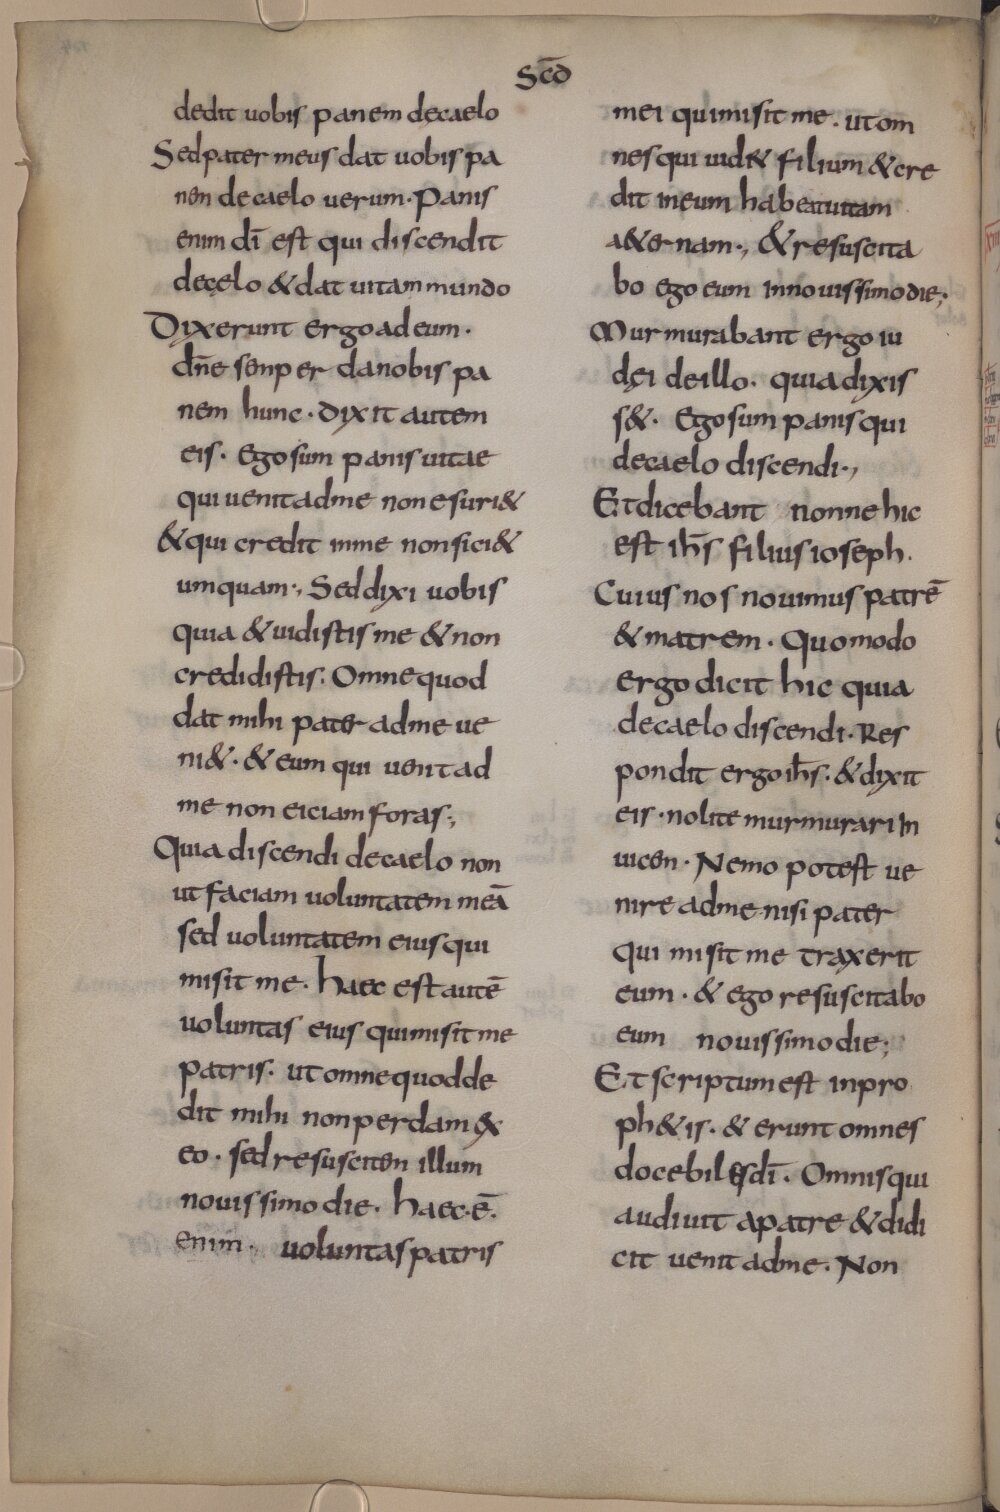 Scd̄
dedit uobis panem decaelo
Sedpater meus dat uobis pa
nen de caelo uerum. Panis
enim dī est qui discendit
decęlo & dat uitam mundo
Dixerunt ergo ad eum.
dn̄e senper da nobis pa
nem hunc. dixit autem
eis. Ego sum panis uitae
qui uenit ad me non esuri&
& qui credit inme non sici&
umquam., Sed dixi uobis
quia & uidistis me & non
credidistis. Omne quod
dat mihi pater ad me ue
ni&. & eum qui uenit ad
me non eiciam foras.,
Quia discendi decaelo non
ut faciam uoluntatem meā
sed uoluntatem eius qui
misit me. haec est autē
uoluntas eius qui misit me
patris. ut omne quod de
dit mihi non perdam ex
eo. sed resusciten illum
nouissimo die. haec. ē.
enim. uoluntas patris
mei qui misit me. ut om
nes qui uid& filium & cre
dit ineum habeat uitam
a&ernam., & resuscita
bo ego eum in nouissimo die;.
Murmurabant ergo iu
dęi deillo. quia dixis
s&. Ego sum panis qui
decaelo discendi.,
Et dicebant nonne hic
est ih̄s filius ioseph.
Cuius nos nouimus patrē
& matrem. Quomodo
ergo dicit hic quia
decaelo discendi. Res
pondit ergo ih̄s. & dixit
eis. nolite murmurari In
uicen. Nemo potest ue
nire ad me nisi pater
qui misit me traxerit
eum. & ego resuscitabo
eum nouissimo die;
Et scriptum est inpro
ph&is. & erunt omnes
docebiles dī. Omnis qui
audiuit apatre & didi
cit uenit ad me. Non